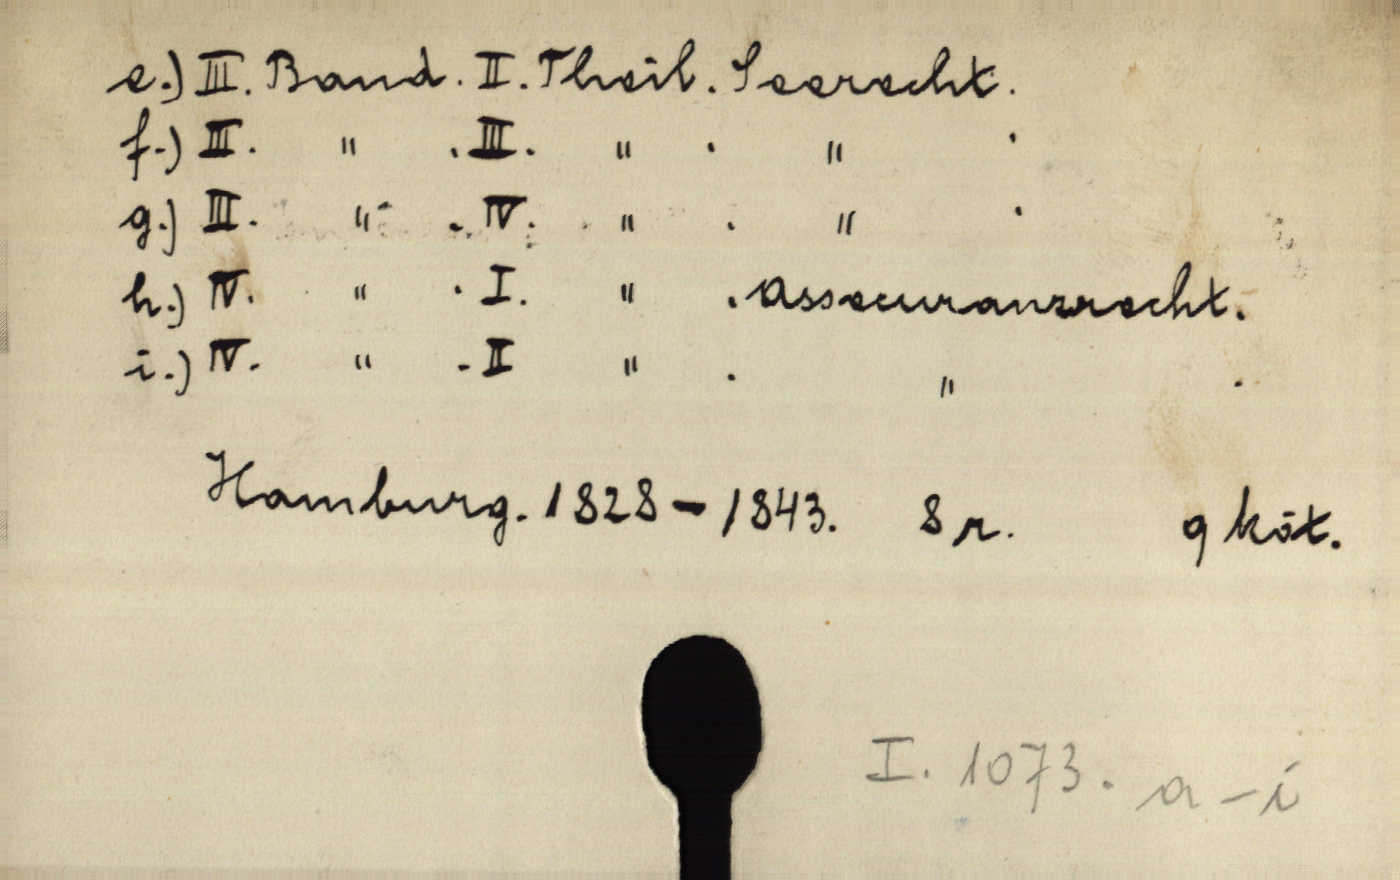 e.) III. Band. II. Theil. Seerecht.
f.) III. " . III. " . " .
g.) III. " . IV. " . " .
h.) IV. " . I. " . Assecuranzrecht.
i.) IV. " . II " . " .
Hamburg. 1828-1843. 8 r. 9 köt.
I. 1073. a-i